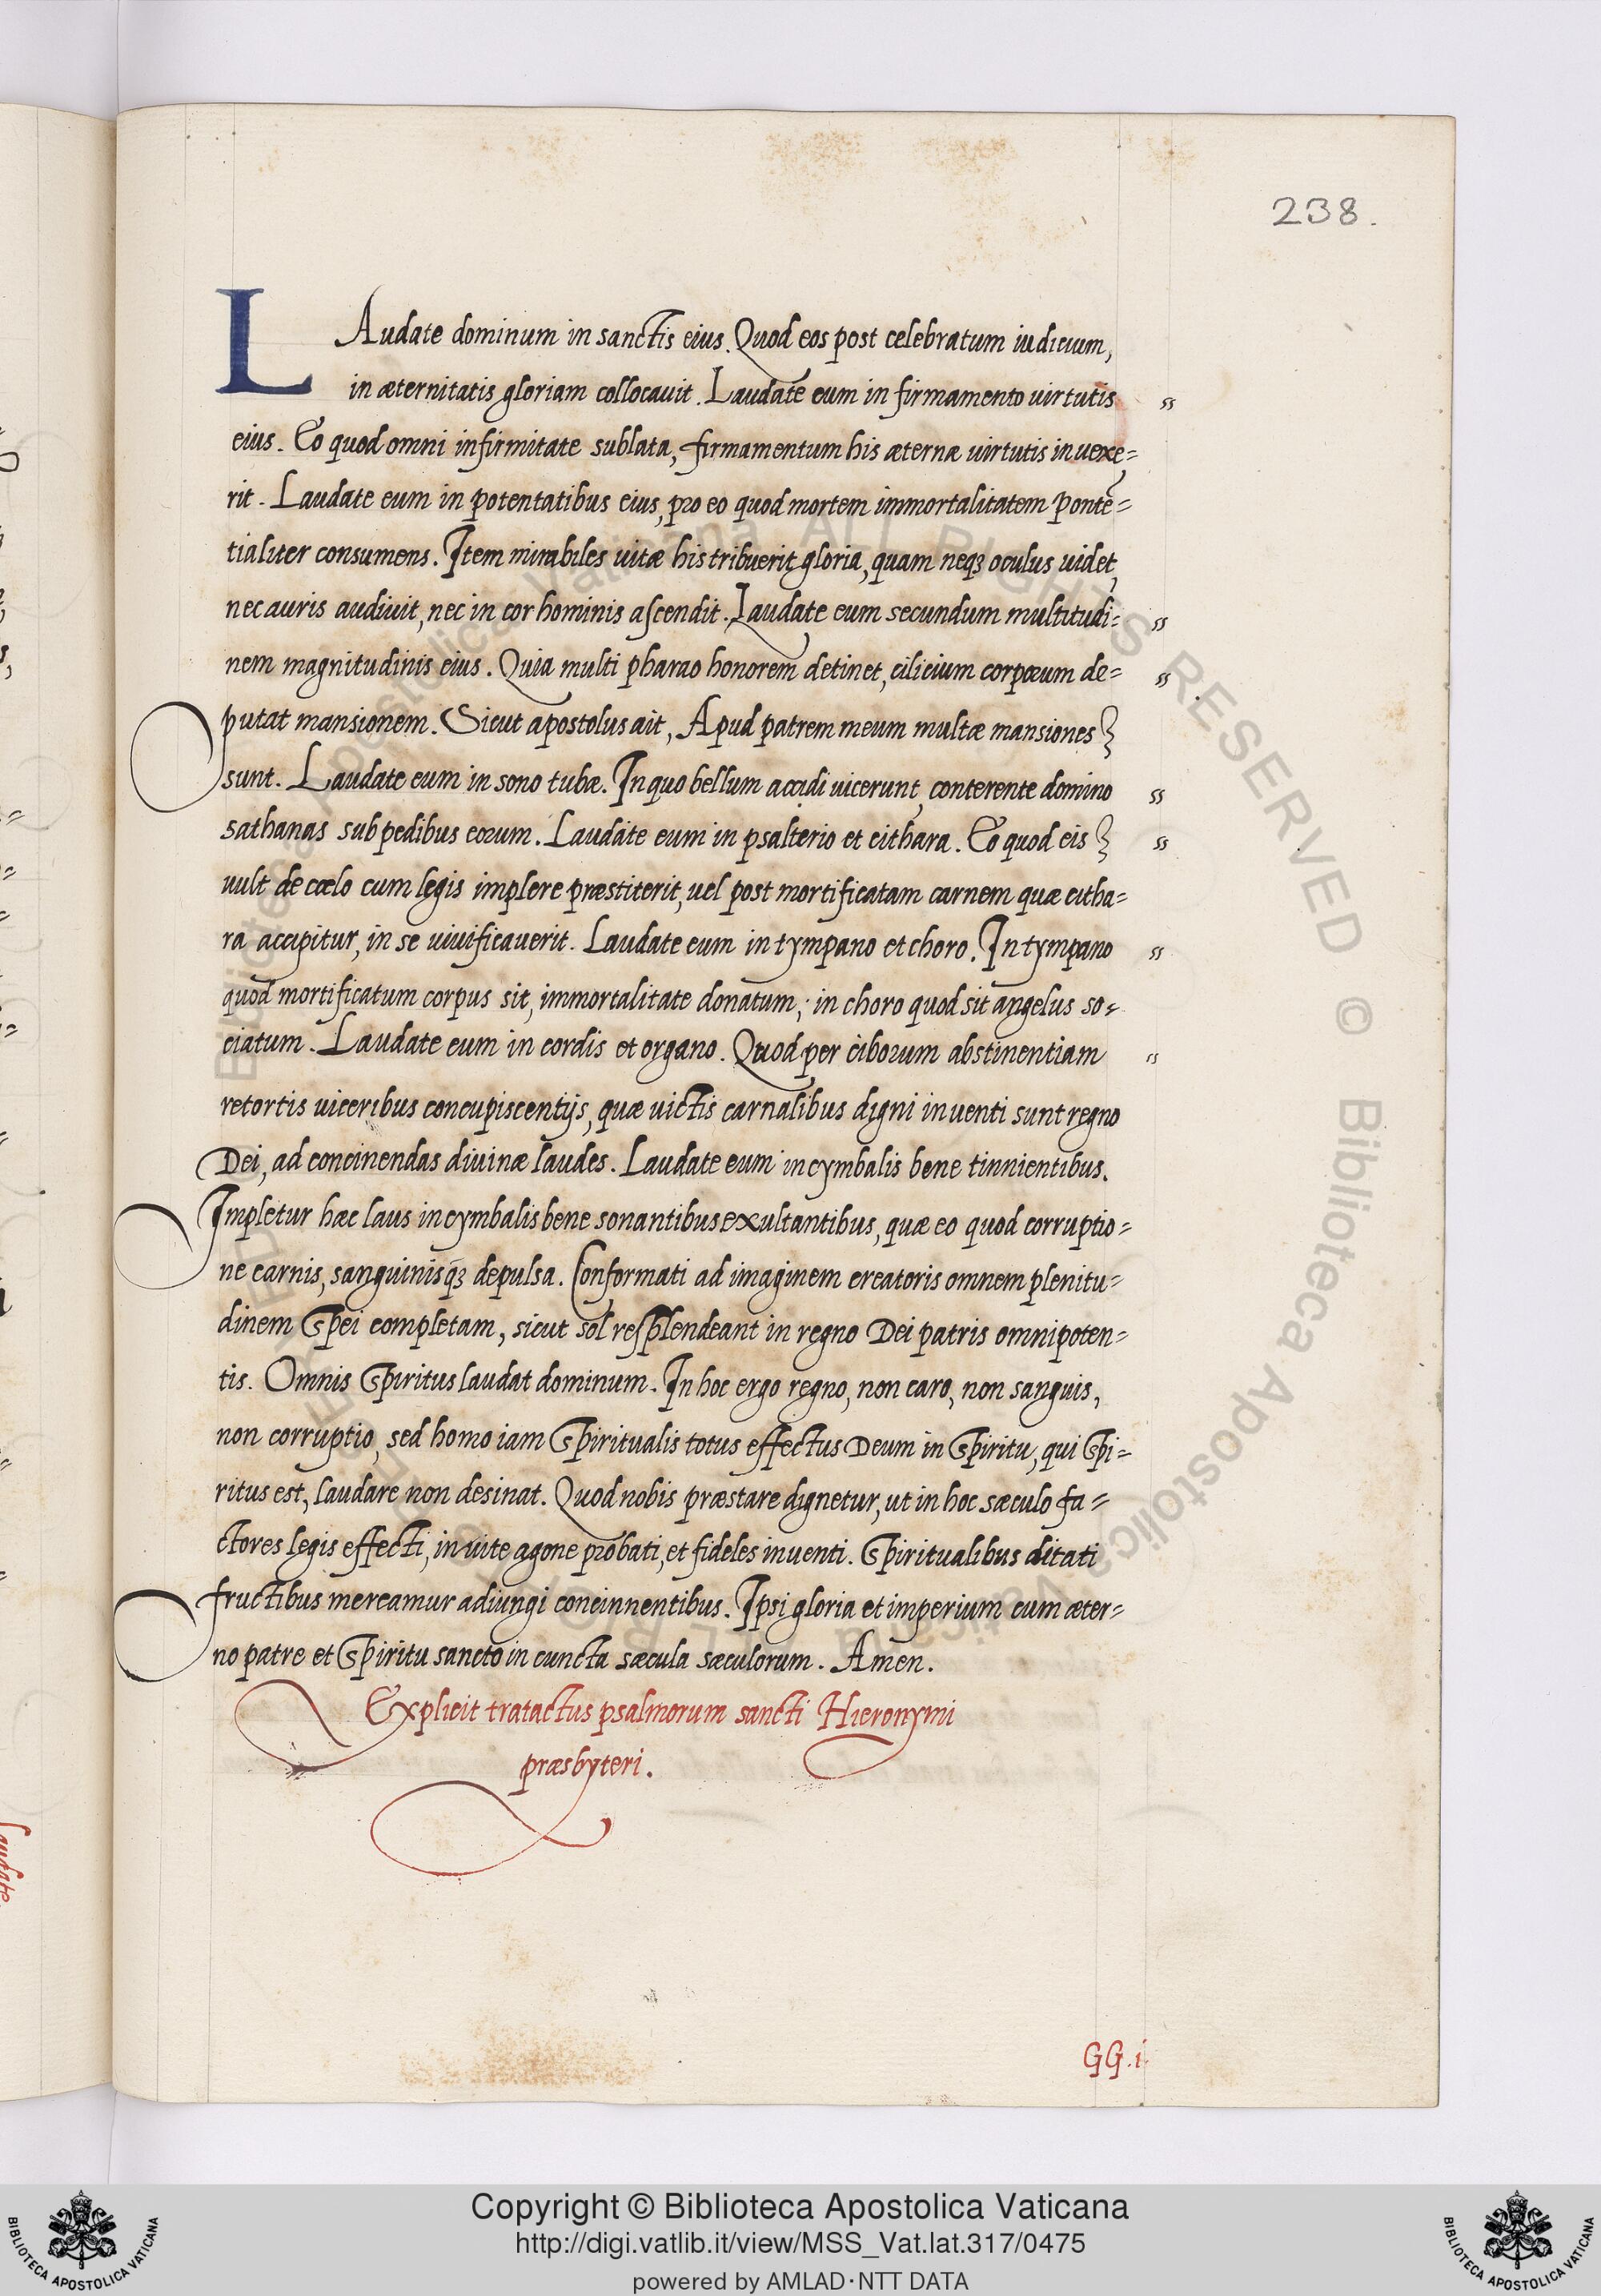 238.
LAudate dominum in sanctis eius. Quod eos post celebratum iudicium,
in æternitatis gloriam collocavit. Laudate eum in firmamento virtutis
eius. Eo quod omni infirmitate sublata, firmamentum his æternæ virtutis invexe=
rit. Laudate eum in potentatibus eius, pro eo quod mortem immortalitatem ponte=
tialiter consumens. Item mirabiles vitæ his tribuerit gloria, quam neqꝫ oculus videt,
nec auris audivit, nec in cor hominis ascendit. Laudate eum secundum multitudi=
nem magnitudinis eius. Quia multi pharao honorem detinet, cilicium corporeum de=
putat mansionem. Sicut apostolus ait, Apud patrem meum multæ mansiones
sunt. Laudate eum in sono tubæ. In quo bellum accidi vicerunt, conterente domino
sathanas sub pedibus eorum. Laudate eum in psalterio et cithara. Eo quod eis
vult de cœlo cum legis implere præstiterit, vel post mortificatam carnem quæ citha=
ra accipitur, in se vivificaverit. Laudate eum in tympano et choro. In tympano
quod mortificatum corpus sit, immortalitate donatum; in choro quod sit angelus so=
ciatum. Laudate eum in cordis et organo. Quod per ciborum abstinentiam
retortis viceribus concupiscentijs, quæ victis carnalibus digni inventi sunt regno
Dei, ad concinendas divinæ laudes. Laudate eum in cymbalis bene tinnientibus.
Impletur hæc laus in cymbalis bene sonantibus exultantibus, quæ eo quod corruptio=
ne carnis, sanguinisq̃ꝫ depulsa. Conformati ad imaginem creatoris omnem plenitu=
dinem Spei completam, sicut sol resplendeant in regno Dei patris omnipoten=
tis. Omnis Spiritus laudat dominum. In hoc ergo regno, non caro, non sanguis,
non corruptio, sed homo iam Spiritualis totus effectus Deum in Spiritu, qui Spi=
ritus est, laudare non desinat. Quod nobis præstare dignetur, ut in hoc sæculo fa=
ctores legis effecti, in vite agone probati, et fideles inventi. Spiritualibus ditati
fructibus mereamur adiungi concinnentibus. Ipsi gloria et imperium cum æter=
no patre et Spiritu sancto in cuncta sæcula sæculorum. Amen.
Explicit tratactus psalmorum sancti Hieronymi
præsbyteri.
GG.i.
Copyright © Biblioteca Apostolica Vaticana
http://digi.vatlib.it/view/MSS_Vat.lat.317/0475
powered by AMLAD·NTT DATA
BIBLIOTECA APOSTOLICA VATICANA
BIBLIOTECA APOSTOLICA VATICANA